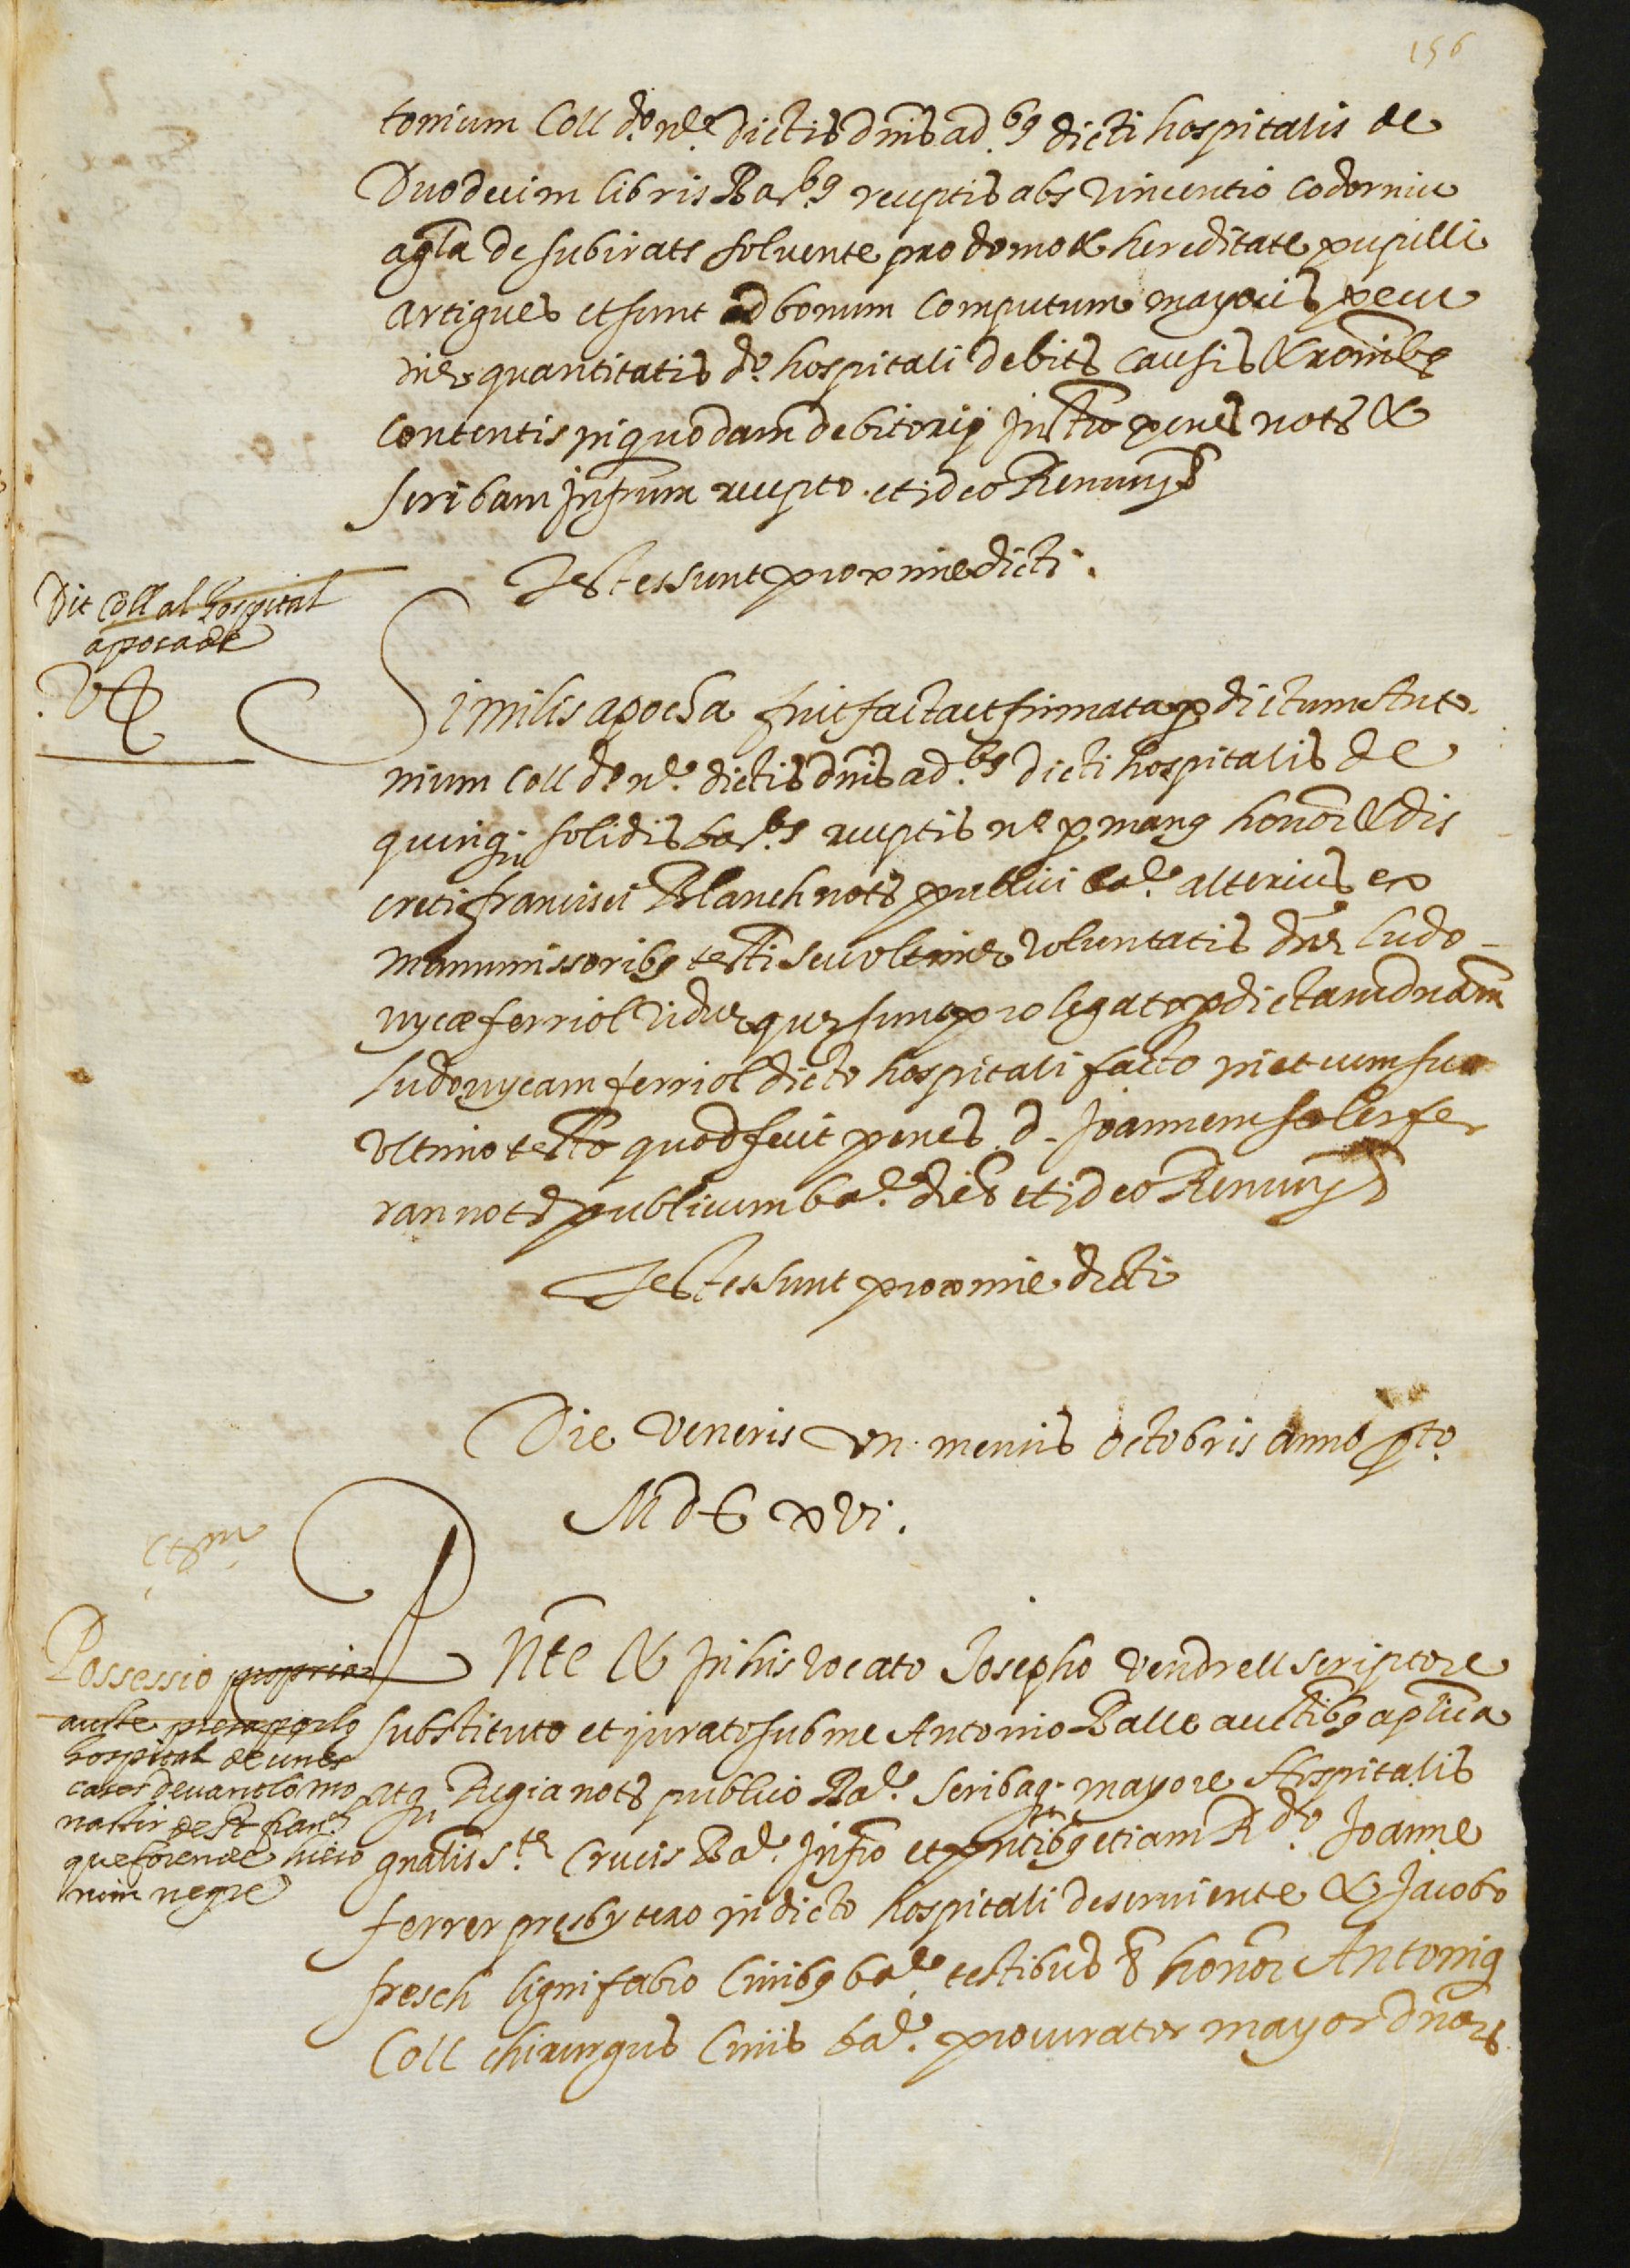 156
tonium Coll d.º n.e dictis dnis ad.bꝰ dicti hospitalis de
Duodecim libris Bar.bꝰ receptis abs Vincentio Codorniu
agla de Subirats solvente pro domo & hereditate pupilli
Artigues et sunt ad bonum Computum mayoris pecu
nie quantitatis d.º hospitali debits causis & ronibꝰ
contentis in quodam debitorij Instro penes nots &
scribam Infrum recepto. et ideo Renuns &
Testes sunt proxime dicti.
Dit Coll al Hospital
apoca de
V ₶
Similis apocha fuit facta et firmata p dictum Anto
nium Coll d.º n.e dictis dnis ad.bꝰ dicti hospitalis de
quinq solidis bar.bs receptis n.e p manꝰ honor & dis
creti francisci Blanch nots publici ba.e alterius ex
manumissoribꝰ testi seu ultime voluntatis dne Ludo-
vycæ ferriol vidue que sunt pro legato p dictam dnam
Ludovycam ferriol dicto hospitali facto in et cum suo
ultimo testo quod fecit penes d. Joannem Soler fer
ran nots publicum ba.e dies et ideo Renuns
Testes sunt proxime dicti
Die veneris vii mensis octobris anno pto.
MDC xvi.
Possessio propria
aute presa per lo
hospital de unes
cases devant lo mo
nastir de St fran.ch
que foren de hiero
nim negre
Pnte & In his vocato Josepho Vendrell scriptore
substituto et jurato sub me Antonio Batlle auctibꝰ aplica
atq Regia nots publico Ba.e scribaq. mayore Hospitalis
gnalis S.te Crucis Ba.e Infro et pntibꝰ etiam R.do Joanne
ferrer presbytero in dicto hospitali deserviente & Jacobo
fresch lignifabro Civibꝰ ba.e testibus & honor Antoniꝰ
Coll chirurgus Civis ba.e procurator mayor dnors